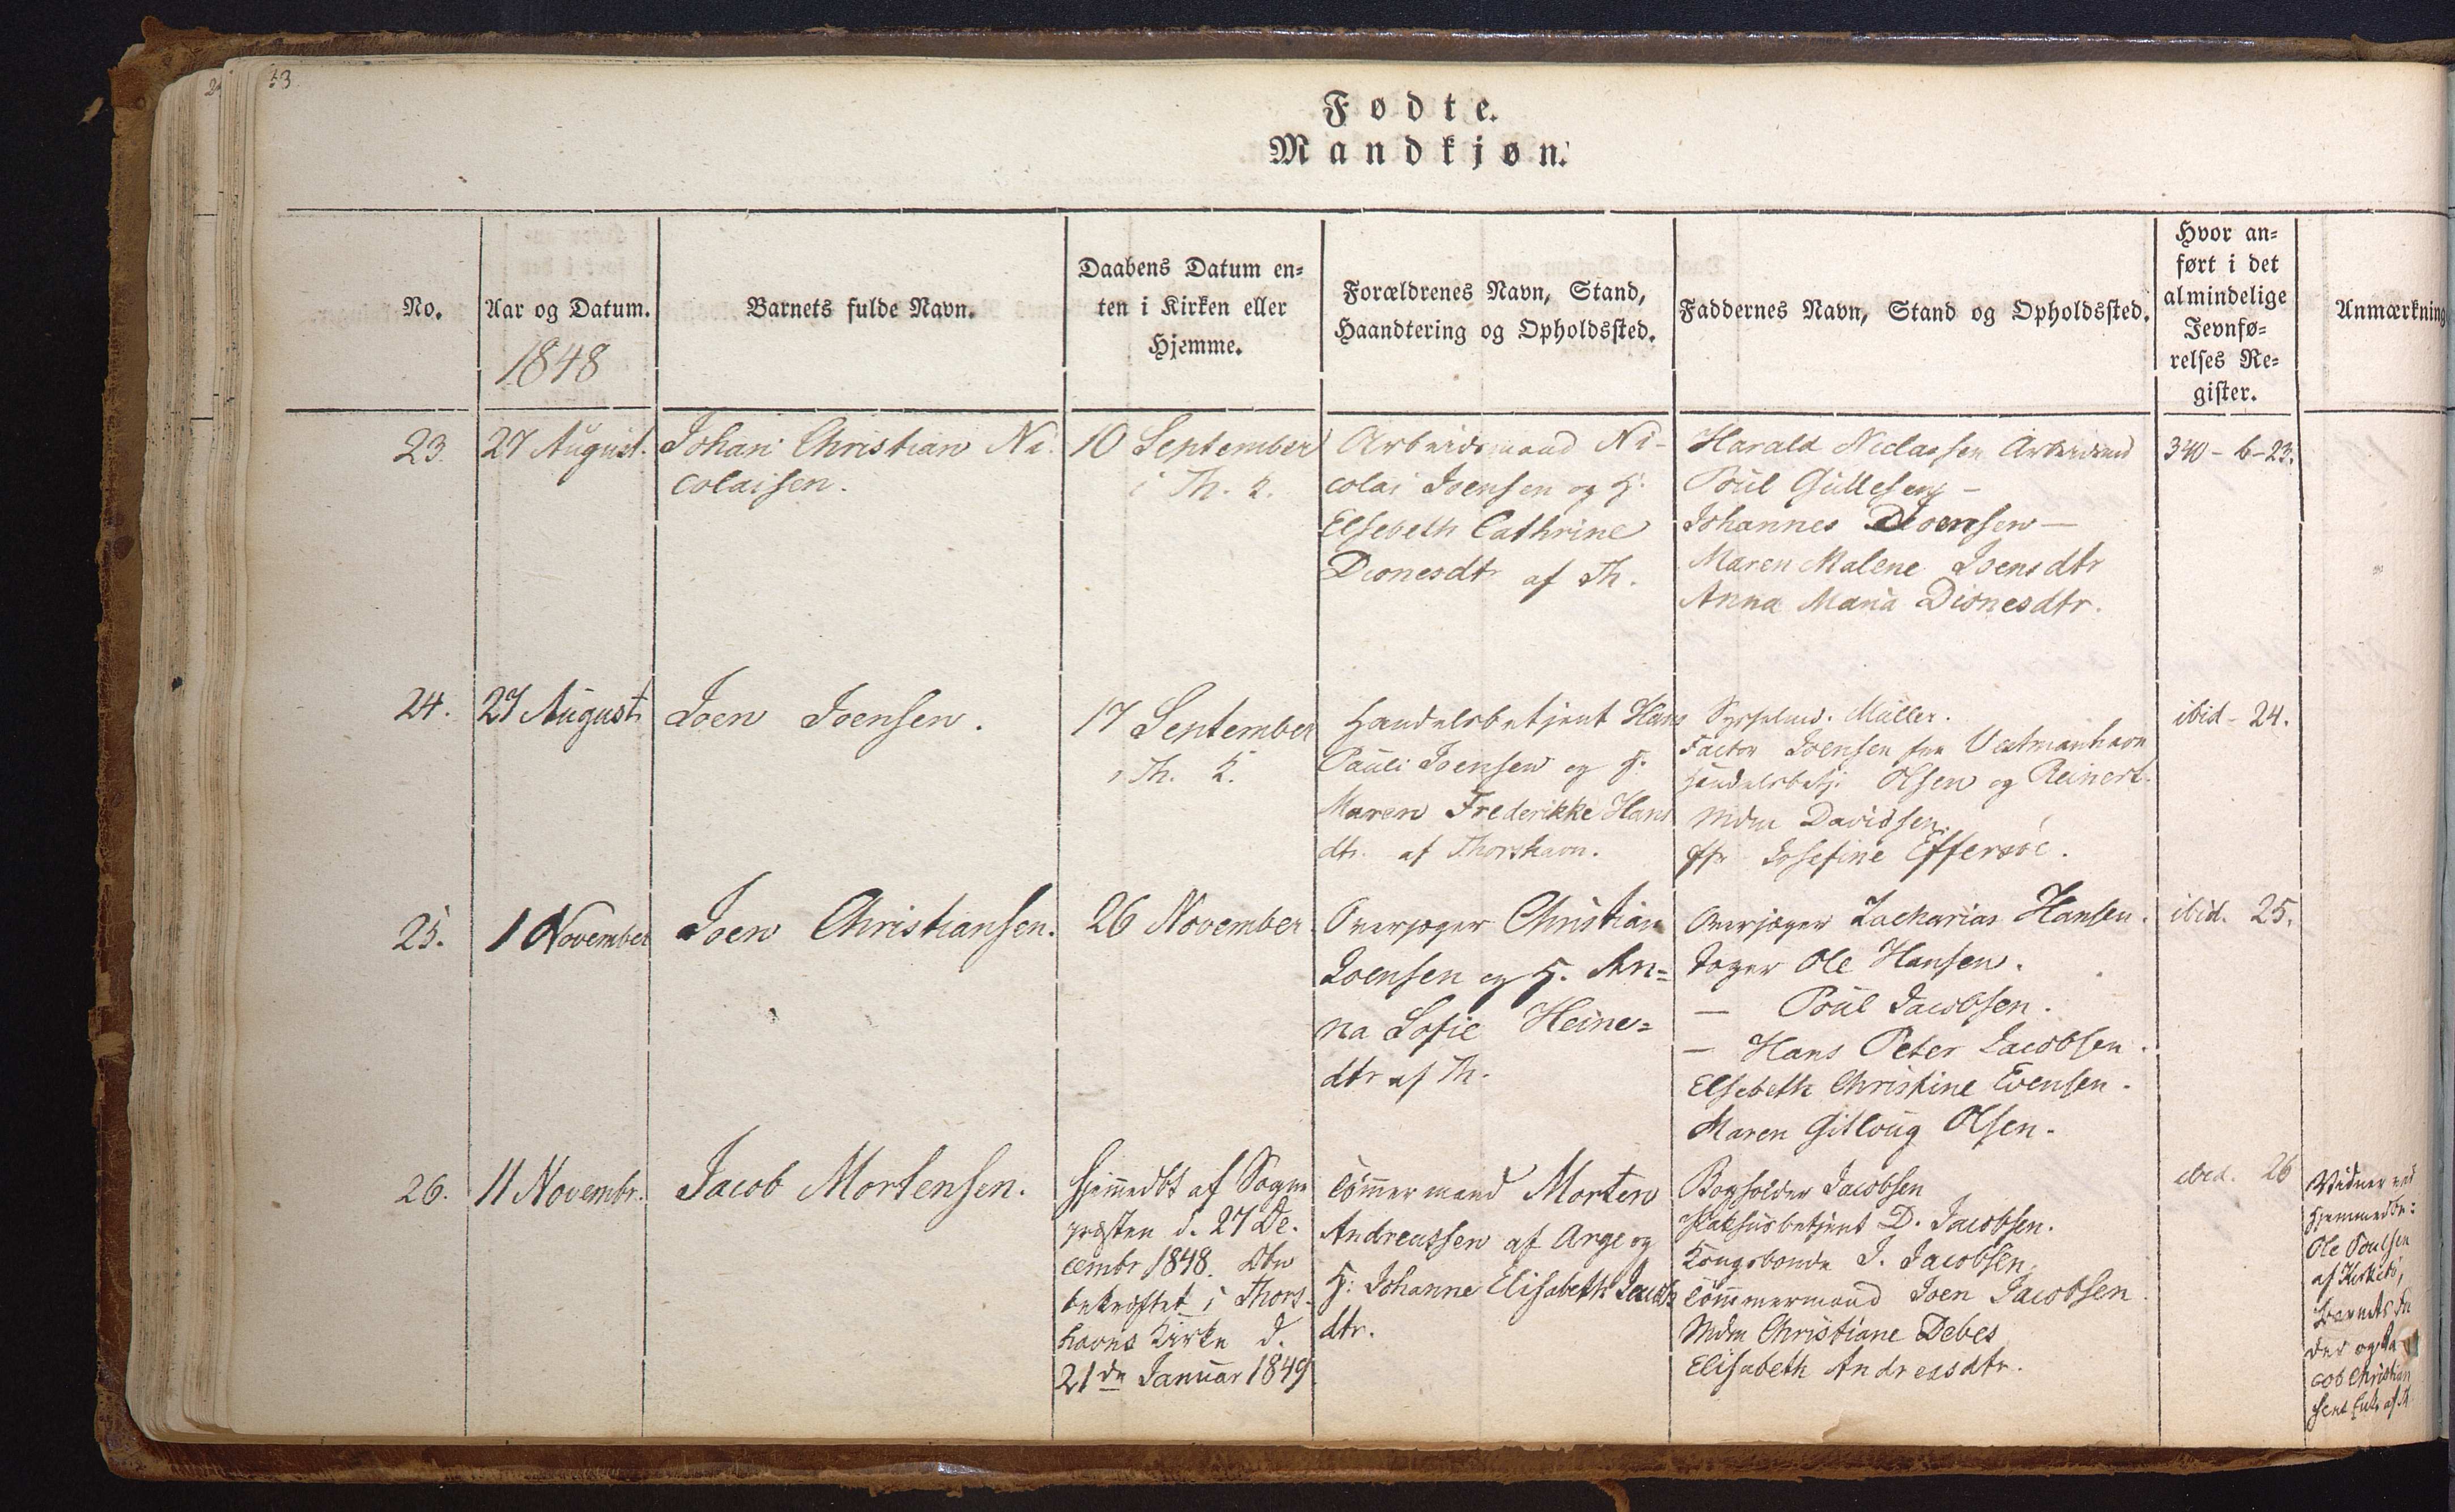 53
Fødte.
Mandkjøn.
No.
Aar og Datum.
1848
Barnets fulde Navn.
Daabens Datum en-
ten i Kirken eller
Hjemme.
Forældrenes Navn, Stand,
Haandtering og Opholdssted.
Faddernes Navn, Stand og Opholdssted.
Hvor an-
ført i det
almindelige
Jevnfø-
relses Re-
gister.
Anmærkning
23.
27 August.
Johan Christian Ni-
colaisen.
10 September
i Th. K.
Arbeidsmand Ni-
colai Joensen og H.
Elsebeth Cathrine
Dionesdtr af Th.
Harald Niclassen Arbeidsmd
Poul Gullesen —
Johannes Dionesen —
Maren Malene Joensdtr
Anna Maria Dionesdtr.
340 - b - 23.
24.
27 August
Joen Joensen.
17 September
i Th. K.
Handelsbetjent Hans
Pauli Joensen og H.
Maren Frederikke Hans
dtr. af Thorshavn.
Sysselmd. Müller.
Factor Joensen fra Vestmanhavn
Handelsbetj. Olsen og Reinert.
Mdm Davidsen.
Jfr Josefine Effersöe.
ibid - 24.
25.
1 November
Joen Christiansen.
26 November
Overjæger Christian
Joensen og H. An-
na Sofie Heine-
dtr af Th.
Overjæger Zacharias Hansen.
Jæger Ole Hansen.
— Poul Jacobsen.
— Hans Peter Jacobsen.
Elsebeth Christine Evensen.
Maren Gitloug Olsen.
ibid. 25.
26.
11 Novembr.
Jacob Mortensen.
Hjemmedbt af Sogne
præsten d. 27 De-
cembr 1848. Dbn
bekræftet i Thors-
havns Kirke d.
21de Januar 1849
Tömmermand Morten
Andreassen af Arge og
H: Johanne Elisabeth Jacobs
dtr.
Bogholder Jacobsen
Pakhusbetjent D. Jacobsen.
Kongsbonde J. Jacobsen.
Tömmermand Joen Jacobsen
Mdm Christiane Debes
Elisabeth Andreasdtr.
ibid. 26
Vidner ved
Hjemmedbn:
Ole Poulsen
af Kirkebö,
Barnets Fa
der og Ja
cob Christian
sens af Th